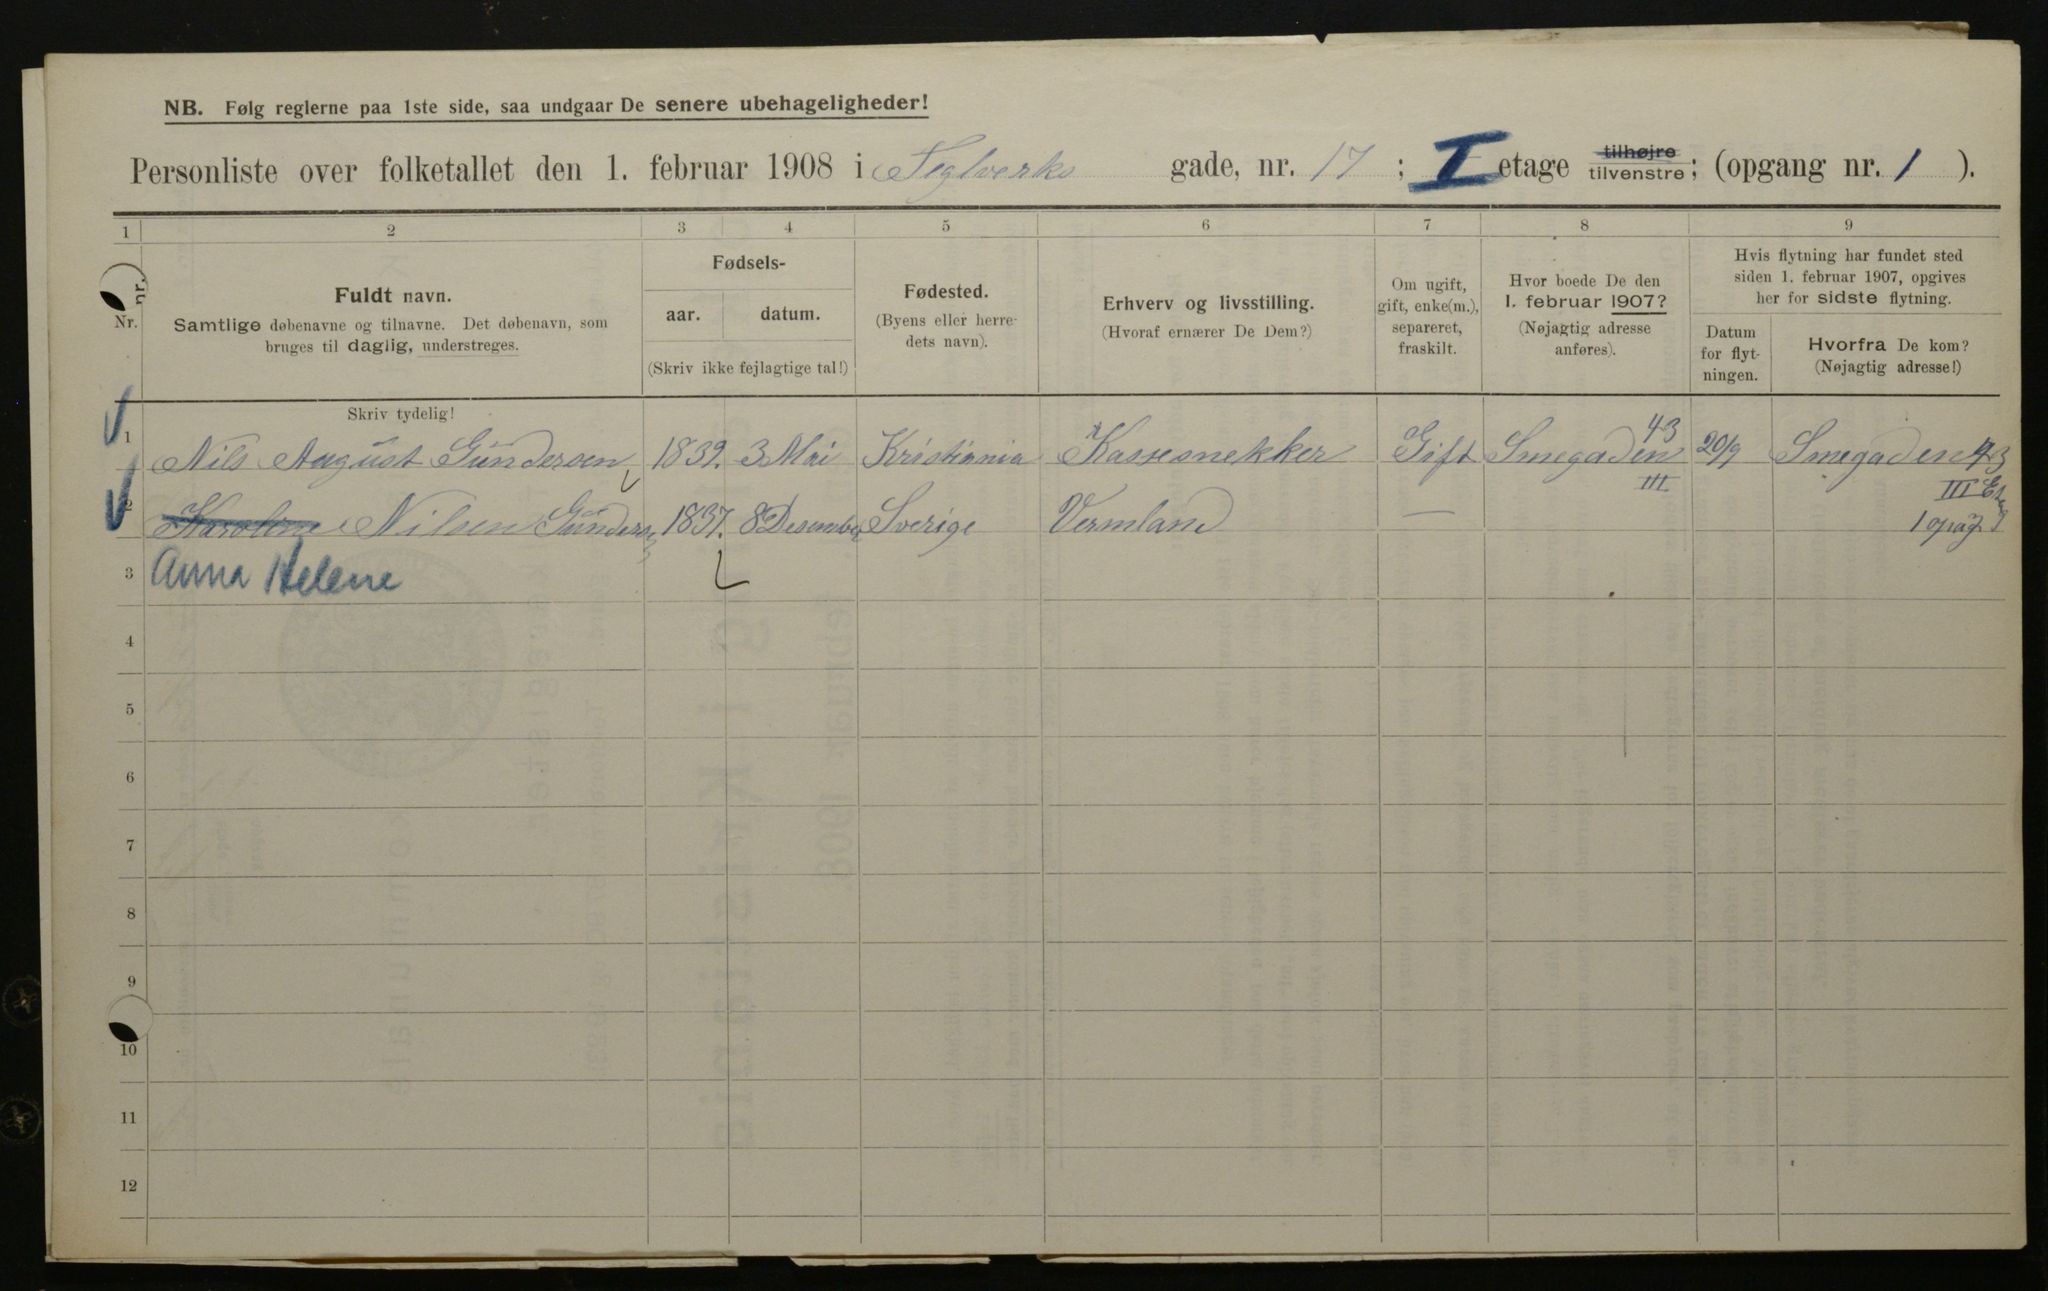 NB. Følg reglerne paa 1ste side, saa undgaar De senere ubehageligheder!
Personliste over folketallet den 1. februar 1908 i Teglverks gade, nr. 17; I etage tilhøjre tilvenstre; (opgang nr. 1 ).
1 2 3 4 5 6 7 8 9
Nr.
Fuldt navn.
Samtlige døbenavne og tilnavne. Det døbenavn, som
bruges til daglig, understreges.
Fødsels-
aar. datum.
(Skriv ikke fejlagtige tal!)
Fødested.
(Byens eller herre-
dets navn).
Erhverv og livsstilling.
(Hvoraf ernærer De Dem?)
Om ugift,
gift, enke(m.),
separeret,
fraskilt.
Hvor boede De den
1. februar 1907?
(Nøjagtig adresse
anføres).
Hvis flytning har fundet sted
siden 1. februar 1907, opgives
her for sidste flytning.
Datum
for flyt-
ningen.
Hvorfra De kom?
(Nøjagtig adresse!)
Skriv tydelig!
1 Nils August Gundersen 1839. 3 Mai Kristiania Kassesnekker Gift Smegaden 43 III 20/9 Smegaden 43
III
2 Karoline Nilsen 1837. 8 Desember Sverige Vermland — 1 opg
3 Anna Helene
4
5
6
7
8
9
10
11
12